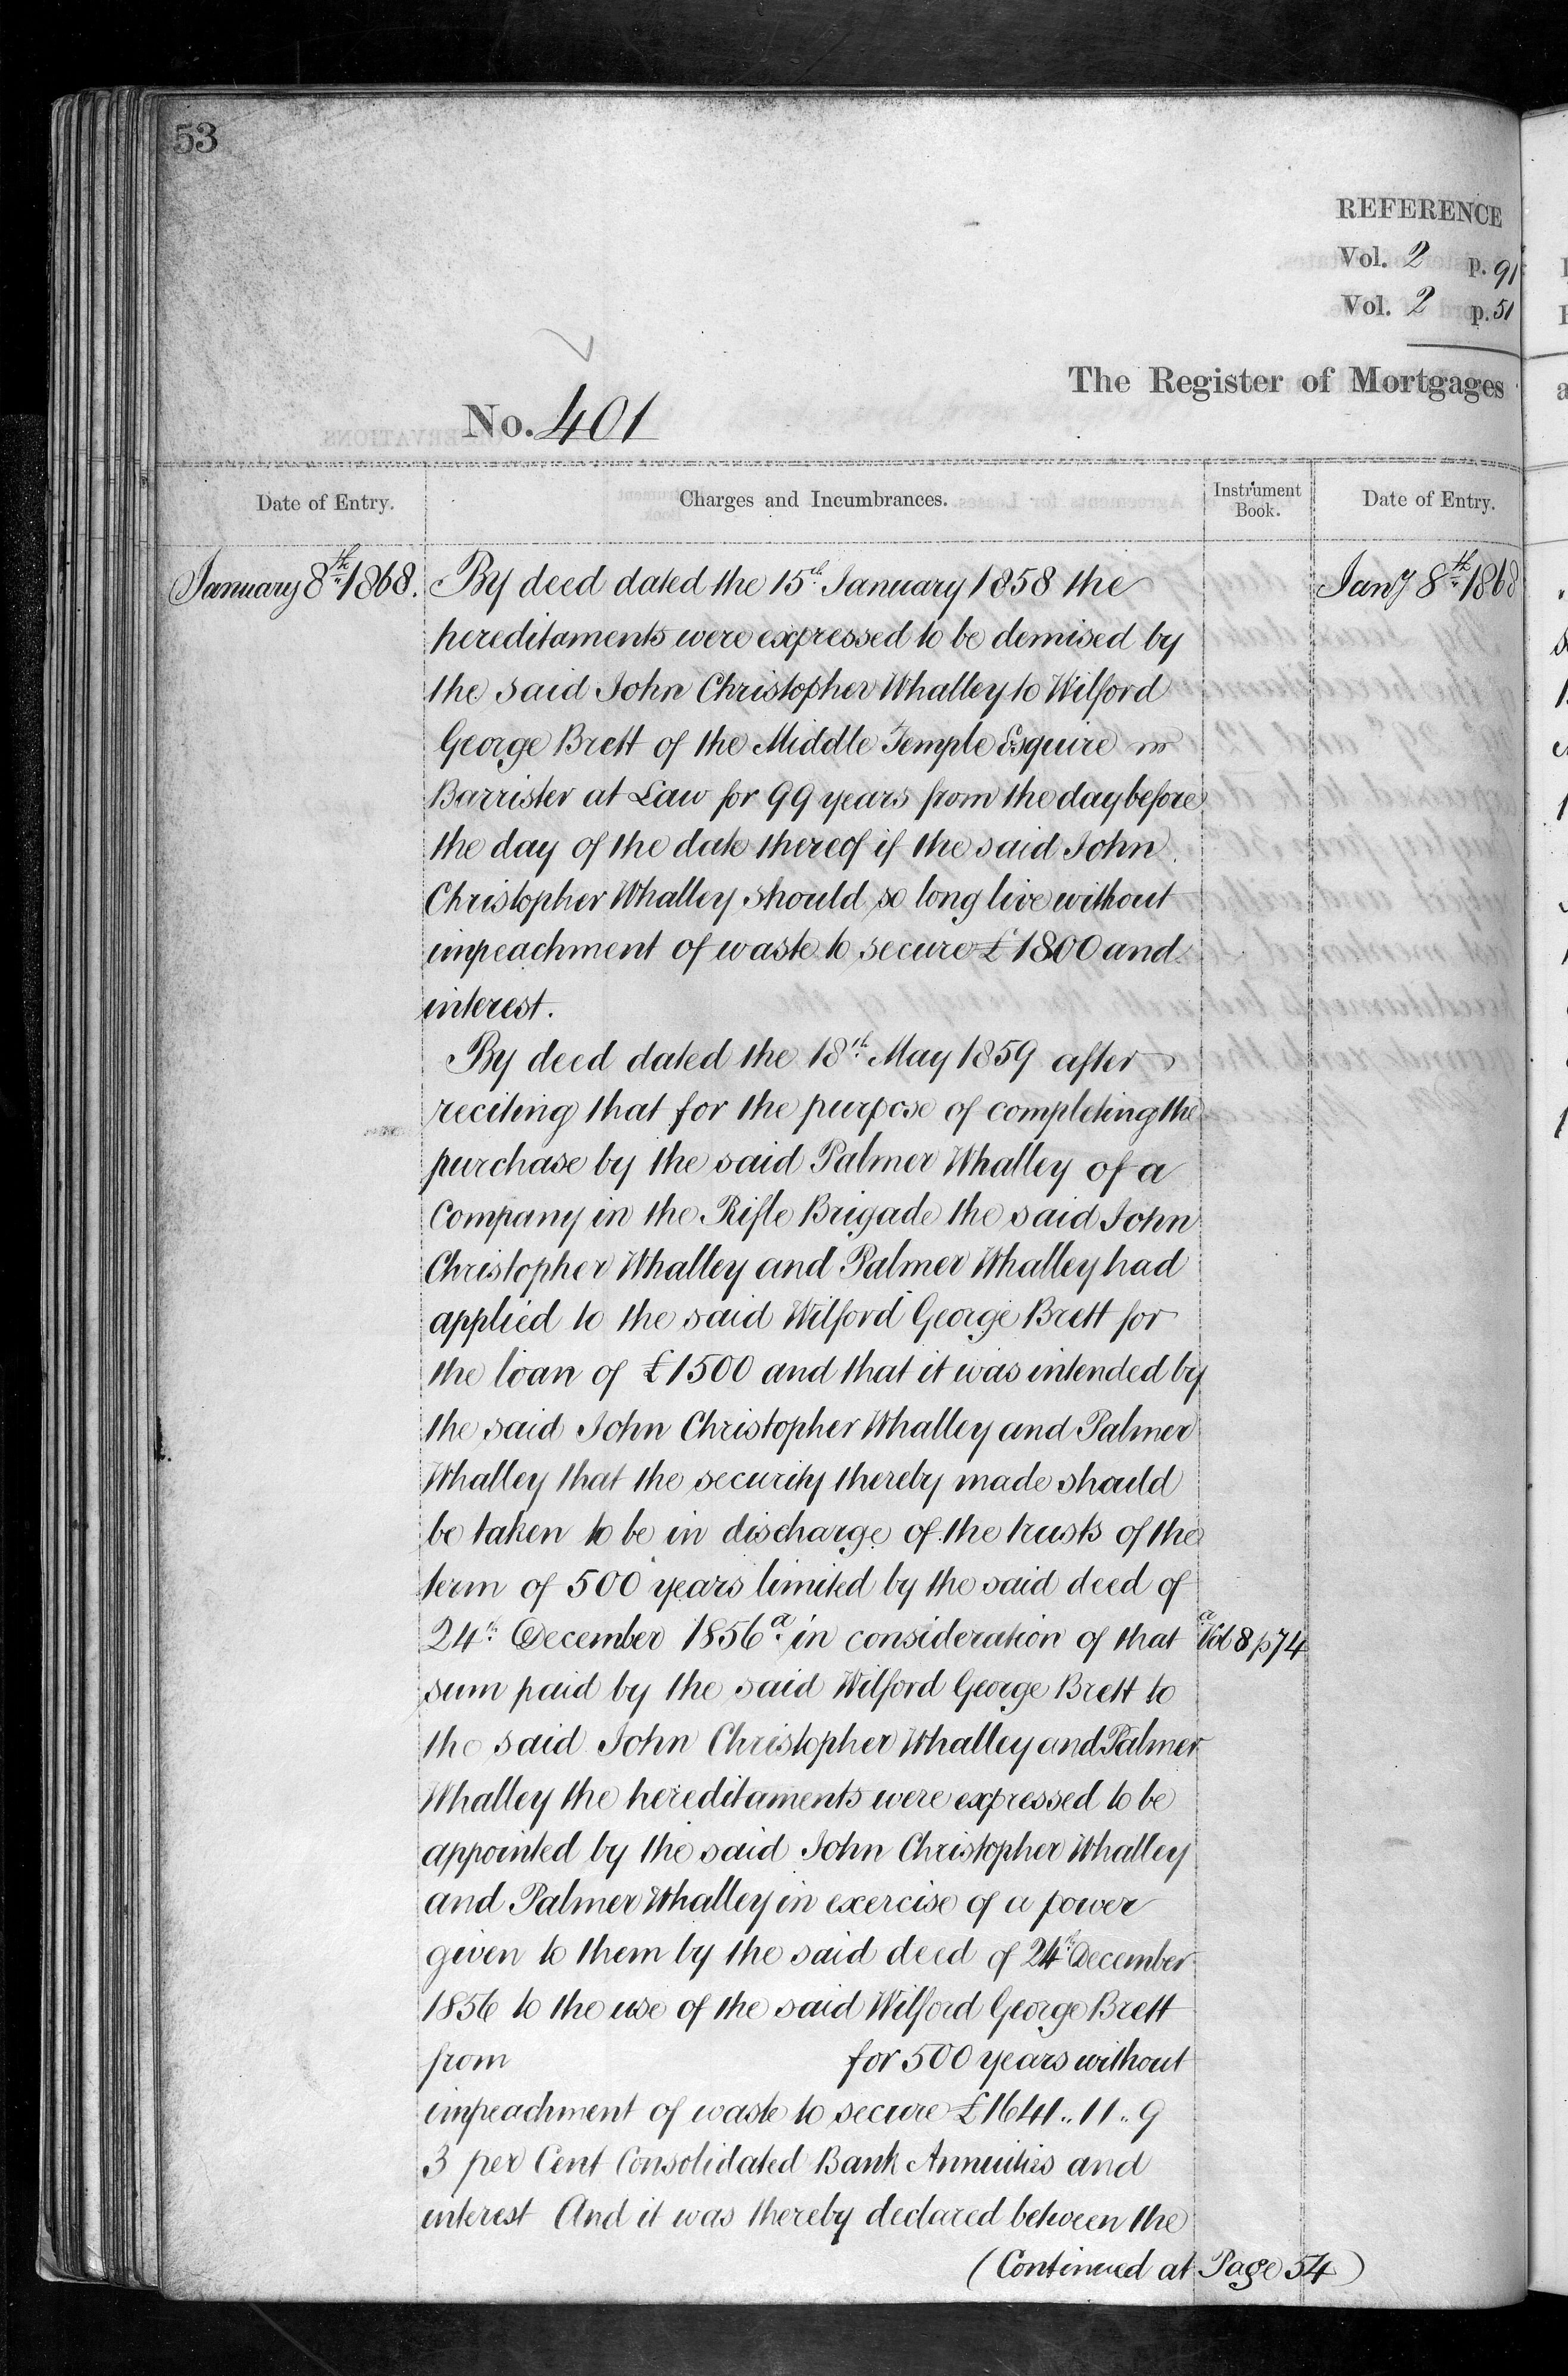 53
REFERENCE
Vol. 2 p. 91
Vol. 2 p. 51
The Register of Mortgages
No. 401
Date of Entry. Charges and Incumbrances. Instrument Book. Date of Entry.
January 8th 1868. By deed dated the 15th January 1858 the Jany 8th 1868
hereditaments were expressed to be demised by
the said John Christopher Whalley to Wilford
George Brett of the Middle Temple Esquire
Barrister at Law for 99 years from the day before
the day of the date thereof if the said John
Christopher Whalley should so long live without
impeachment of waste to secure £1800 and
interest.
By deed dated the 18th May 1859 after
reciting that for the purpose of completing the
purchase by the said Palmer Whalley of a
Company in the Rifle Brigade the said John
Christopher Whalley and Palmer Whalley had
applied to the said Wilford George Brett for
the loan of £1500 and that it was intended by
the said John Christopher Whalley and Palmer
Whalley that the security thereby made should
be taken to be in discharge of the trusts of the
term of 500 years limited by the said deed of
24th December 1856 a in consideration of that a Vol 8 p 74
sum paid by the said Wilford George Brett to
the said John Christopher Whalley and Palmer
Whalley the hereditaments were expressed to be
appointed by the said John Christopher Whalley
and Palmer Whalley in exercise of a power
given to them by the said deed of 24th December
1856 to the use of the said Wilford George Brett
from for 500 years without
impeachment of waste to secure £1641..11..9
3 per Cent Consolidated Bank Annuities and
interest And it was thereby declared between the
(Continued at Page 54)